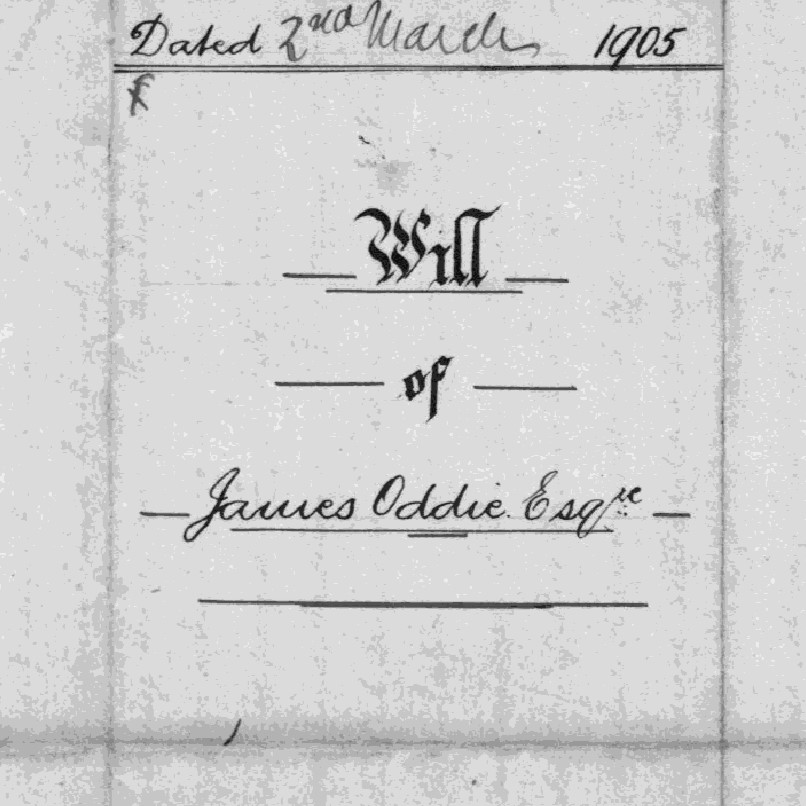 Dated 2nd March 1905
Will
of
James Oddie Esqre